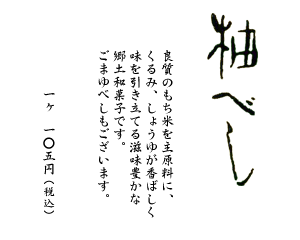 柚べし
良質のもち米を主原料に、
くるみ、しょうゆが香ばしく
味を引き立てる滋味豊かな
郷土和菓子です。
ごまゆべしもございます。
一ヶ 一〇五円（税込）